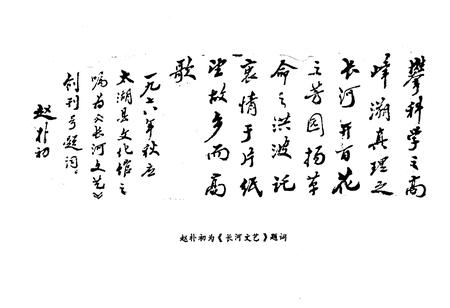 攀科学之高
峰溯真理之
长河开百花
之芳园扬革
命之洪波托
衷情于片纸
望故乡而高
歌
一九七八年秋应
太湖县文化馆之
嘱为《长河文艺》
创刊号题词。
赵朴初
赵朴初为《长河文艺》题词